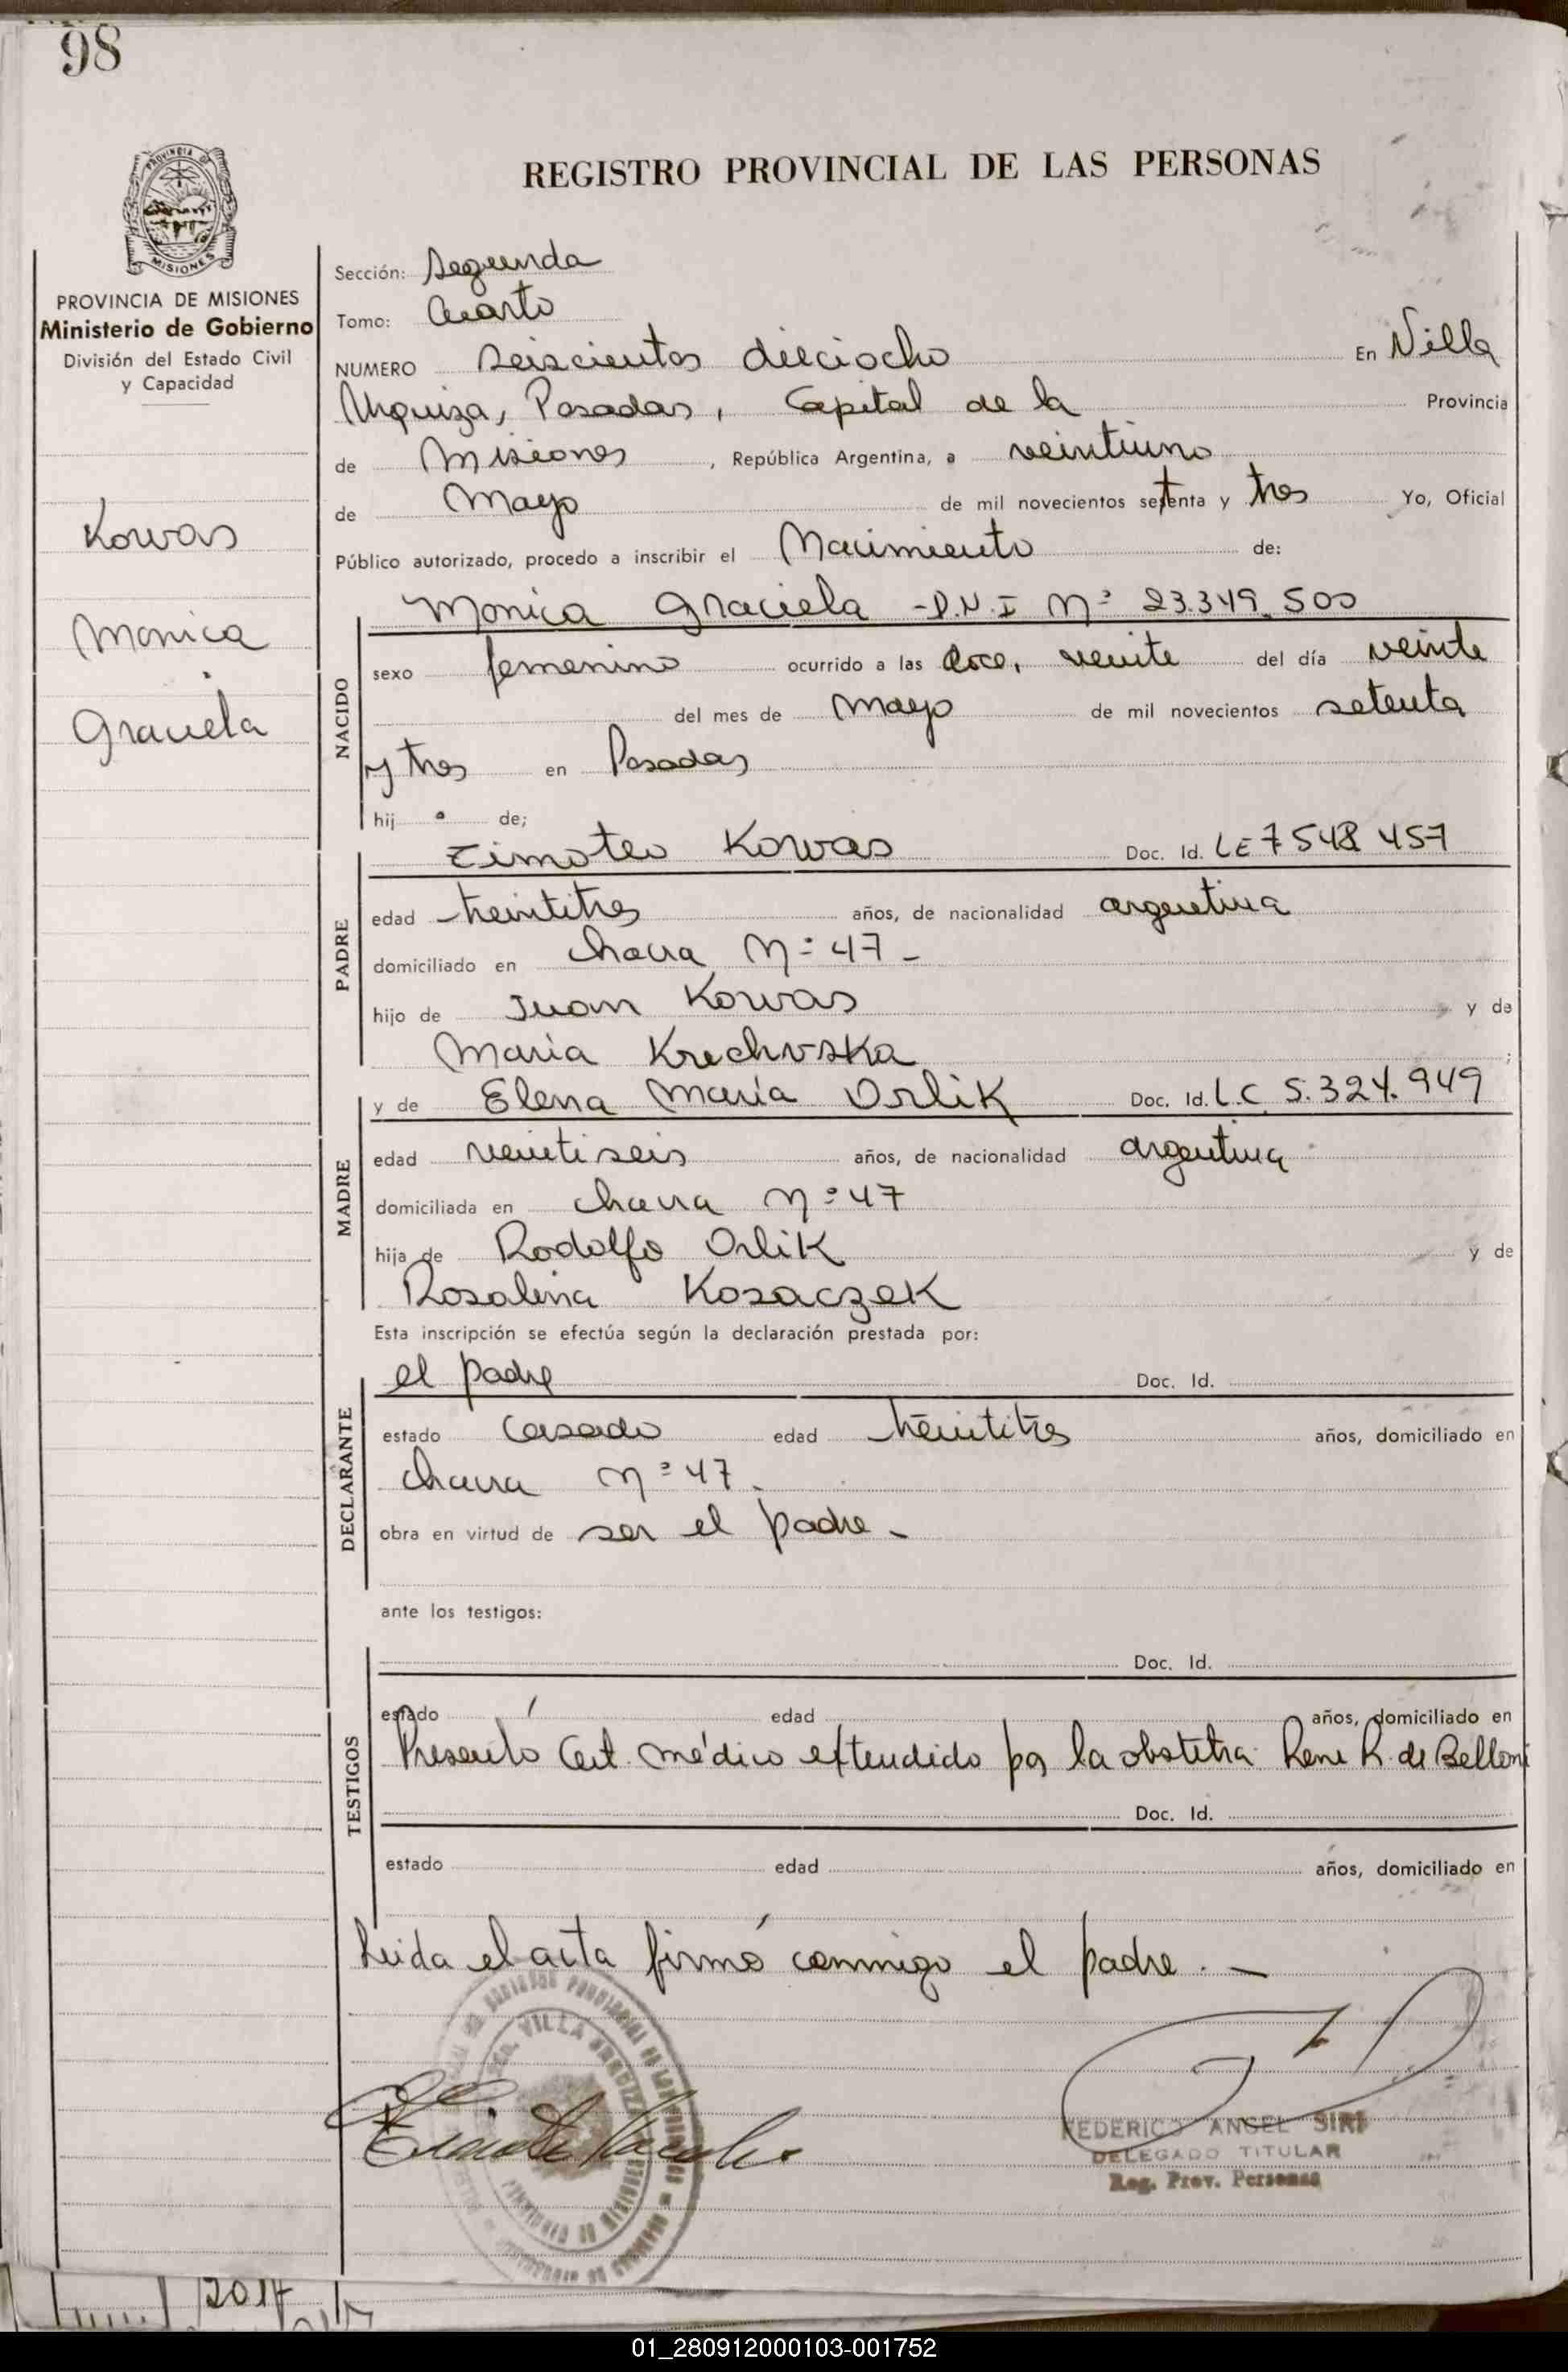 98
REGISTRO PROVINCIAL DE LAS PERSONAS
PROVINCIA DE
MISIONES
PROVINCIA DE MISIONES
Ministerio de Gobierno
División del Estado Civil
y Capacidad
Kowas
Monica
Graciela
Sección: Segunda
Tomo: Cuarto
NUMERO seiscientos dieciocho En Villa
Urquiza, Posadas, Capital de la Provincia
de Misiones, República Argentina, a veintiuno
de Mayo de mil novecientos setenta y tres Yo, Oficial
Público autorizado, procedo a inscribir el Nacimiento de:
Monica Graciela -D.N.I Nº 23.349.500
NACIDO
sexo femenino ocurrido a las doce, veinte del día veinte
del mes de mayo de mil novecientos setenta
y tres en Posadas
hij a de;
Timoteo Kowas Doc. Id. LE 7548 457
PADRE
edad treintitres años, de nacionalidad argentina
domiciliado en chacra Nº 47 -
hijo de Juan Kowas y de
Maria Krechvska ;
y de Elena Maria Orlik Doc. Id. L.C 5.324.949
MADRE
edad veintiseis años, de nacionalidad argentina
domiciliada en chacra Nº 47
hija de Rodolfo Orlik y de
Rosalina Kosaczek
Esta inscripción se efectúa según la declaración prestada por:
el padre Doc. Id.
DECLARANTE
estado casado edad treintitres años, domiciliado en
chacra Nº 47.
obra en virtud de ser el padre -
ante los testigos:
Doc. Id.
TESTIGOS
estado edad años, domiciliado en
Presentó Cert. médico extendido por la obstetra Rene R. de Belloni
Doc. Id.
estado edad años, domiciliado en
Leida el acta firmó conmigo el padre. -
VILLA URQUIZA
FEDERICO ANGEL SIRI
DELEGADO TITULAR
Reg. Prov. Personas
2017
01_280912000103-001752